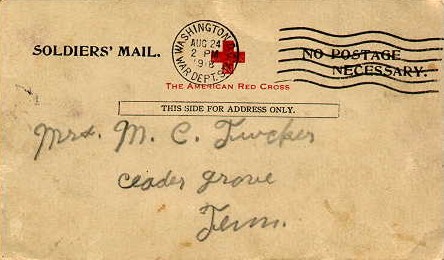 SOLDIERS' MAIL.
WASHINGTON, D.C.
AUG 24
2 PM
1918
WAR DEPT. STA.
NO POSTAGE
NECESSARY.
THE AMERICAN RED CROSS
THIS SIDE FOR ADDRESS ONLY.
Mrs. M. C. Tucker
ceader grove
Tenn.